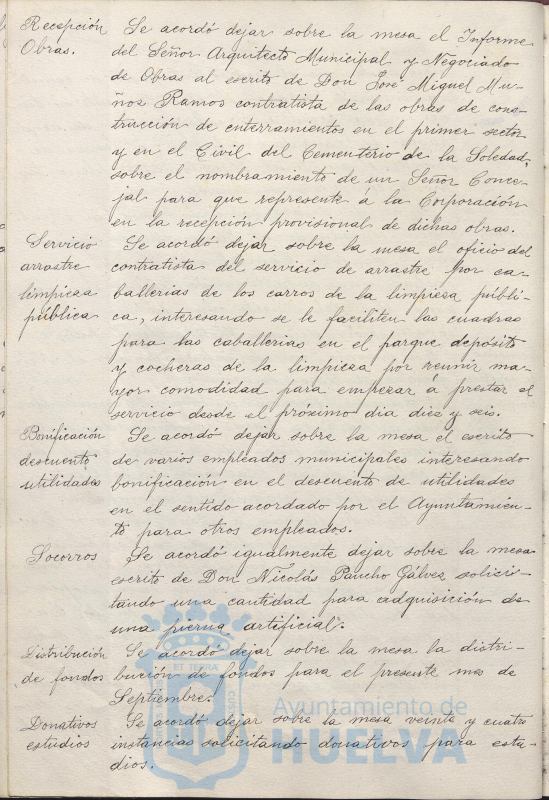 Recepción Se acordó dejar sobre la mesa el Informe
Obras. del Señor Arquitecto Municipal y Negociado
de Obras al escrito de Don José Miguel Mu-
ñoz Ramos contratista de las obras de cons-
trucción de enterramientos en el primer sector
y en el Civil del Cementerio de la Soledad,
sobre el nombramiento de un Señor Conce-
jal para que represente á la Corporación
en la recepción provisional de dichas obras.
Servicio Se acordó dejar sobre la mesa el oficio del
arrastre contratista del servicio de arrastre por ca-
limpieza ballerias de los carros de la limpieza públi-
pública ca, interesando se le faciliten las cuadras
para las caballerias en el parque depósito
y cocheras de la limpieza por reunir ma-
yor comodidad para empezar á prestar el
servicio desde el próximo dia diez y seis.
Bonificación Se acordó dejar sobre la mesa el escrito
descuento de varios empleados municipales interesando
utilidades bonificación en el descuento de utilidades
en el sentido acordado por el Ayuntamien-
to para otros empleados.
Socorros Se acordó igualmente dejar sobre la mesa
escrito de Don Nicolás Pancho Gálvez solici-
tando una cantidad para adquisición de
una pierna artificial.
Distribución Se acordó dejar sobre la mesa la distri-
de fondos bución de fondos para el presente mes de
Septiembre.
Donativos Se acordó dejar sobre la mesa veinte y cuatro
estudios instancias solicitando donativos para estu-
dios.
ET TERRÆ
Ayuntamiento de
HUELVA